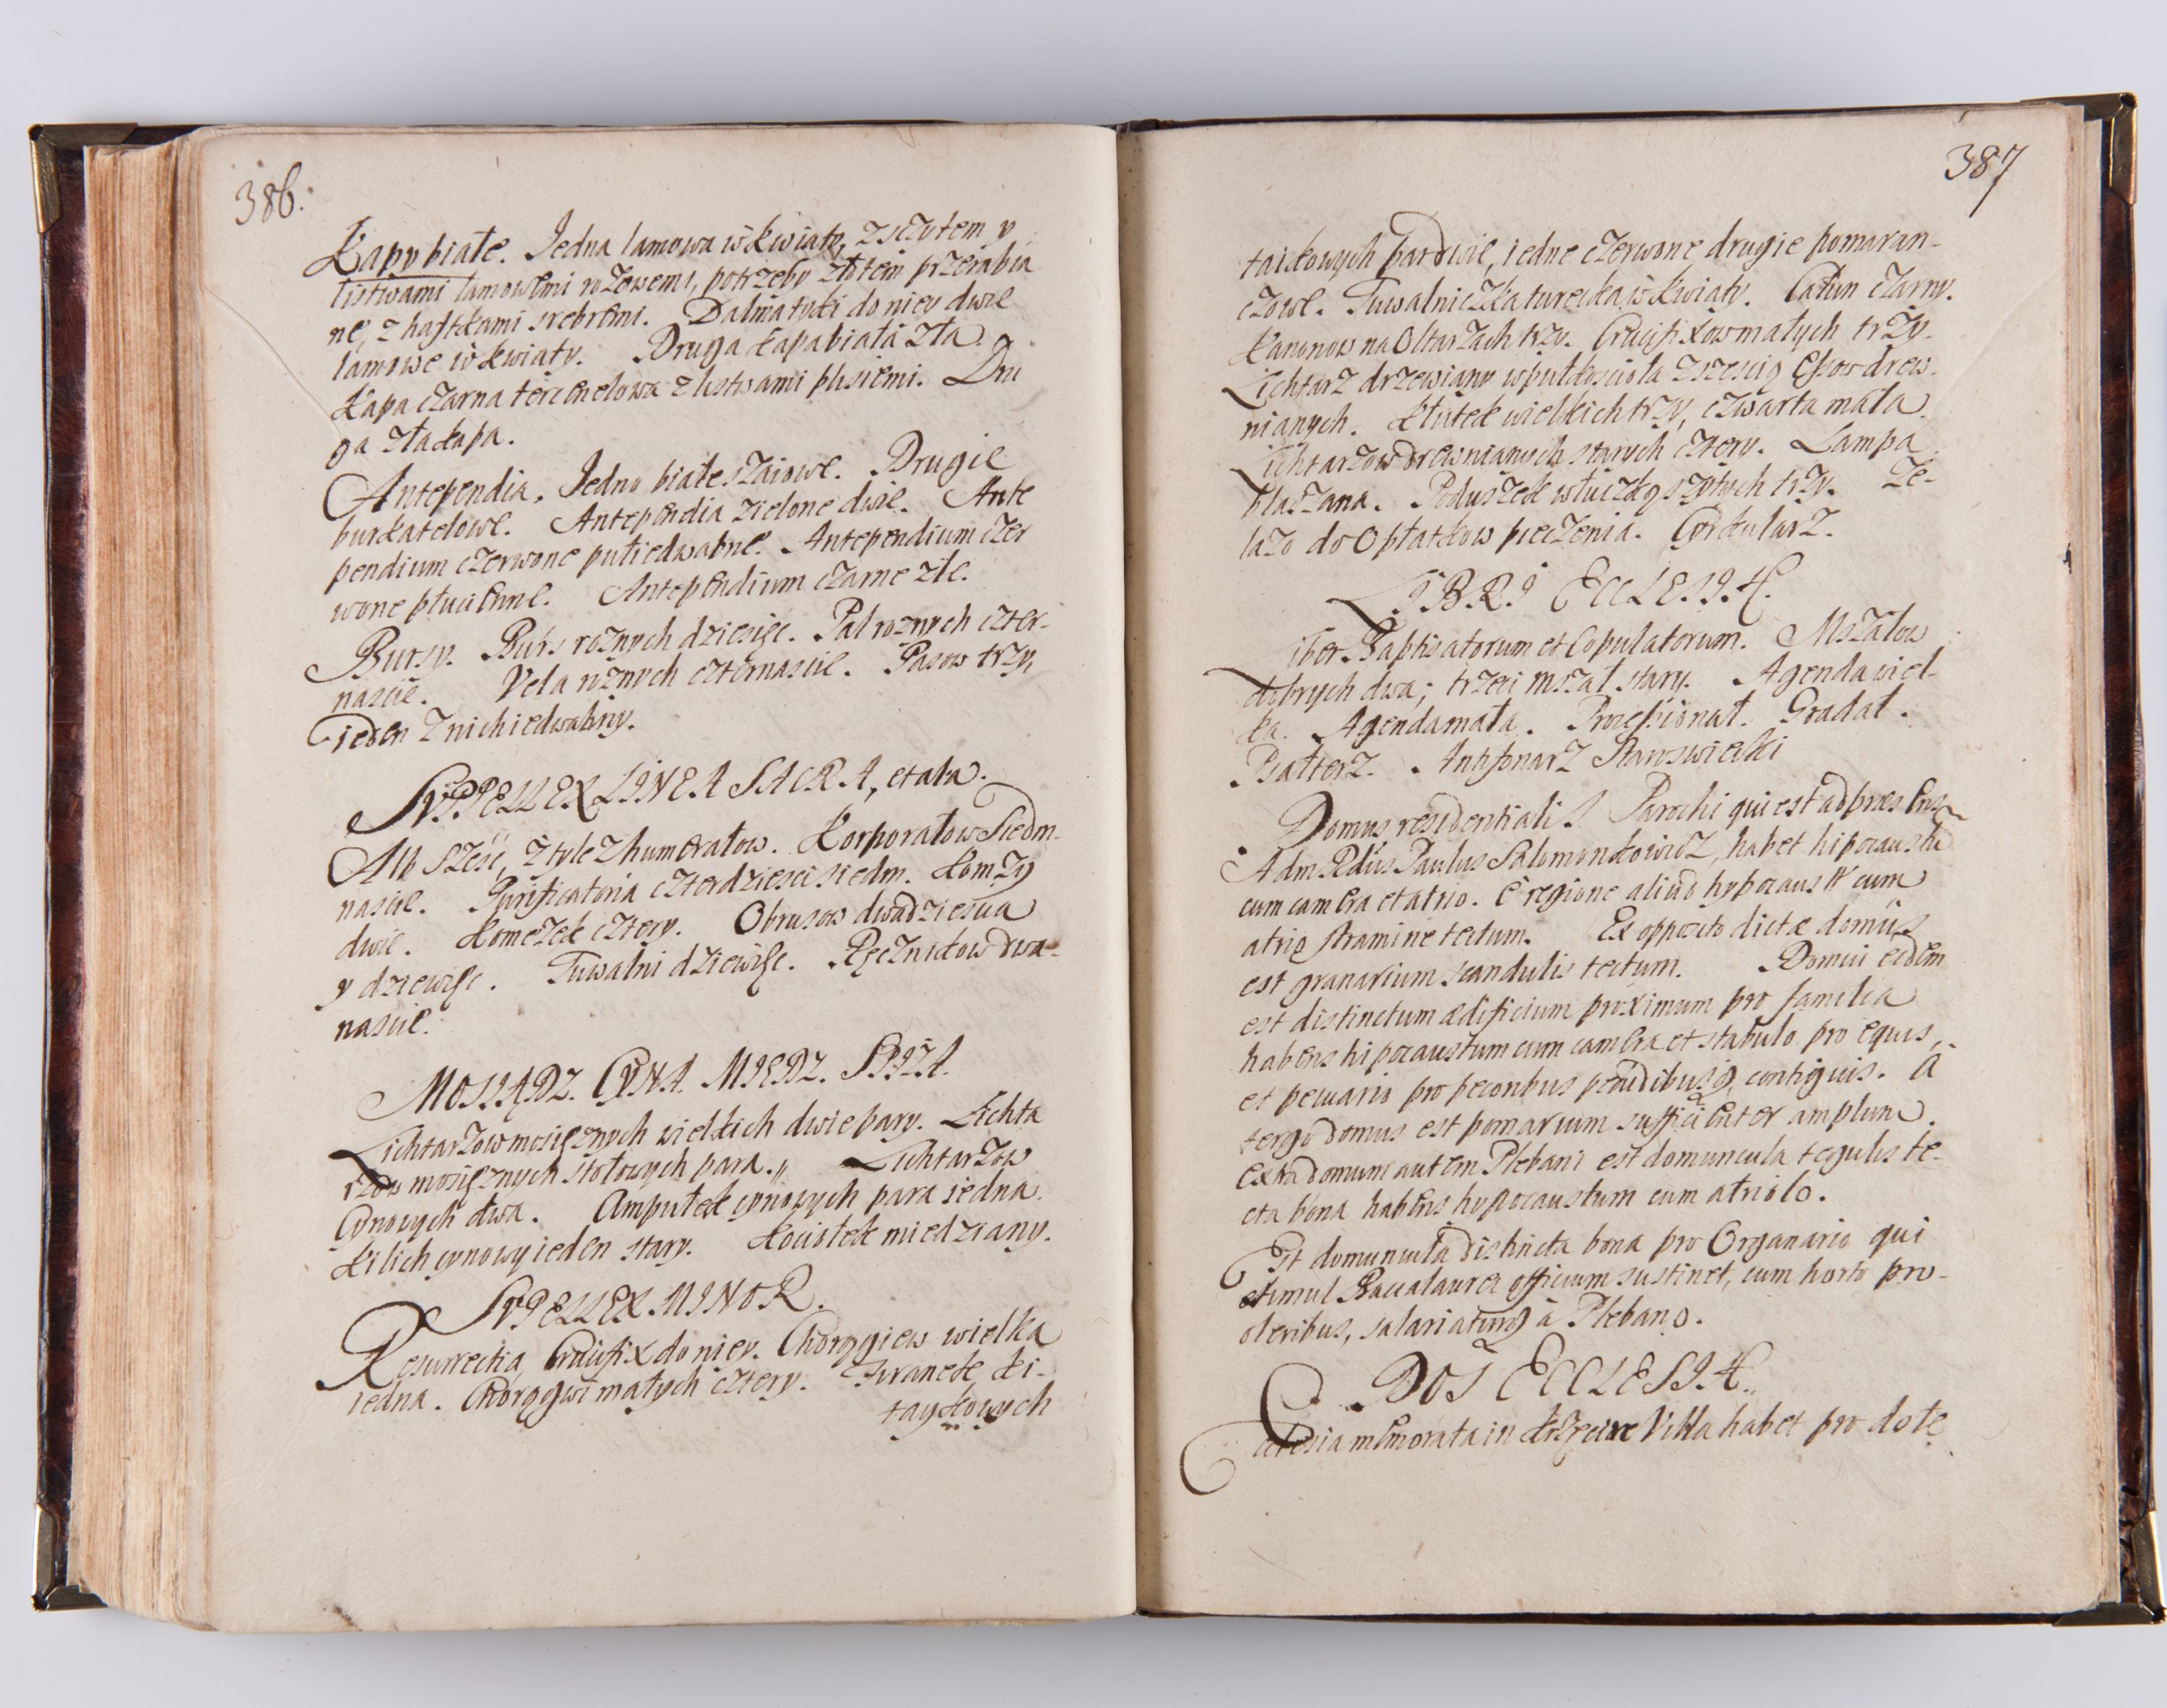 386.
Kapy białe. Jedna lamowa w kwiaty, z sczytem y
listwami lamowemi rożowemi, potrzeby złotem przerabia
ne, z haftkami srebremi. Dalmatyki do niey dwie
lamowe w kwiaty. Druga kapa biała zła.
Kapa czarna tercenelowa z listwami plisiemi. Dru
ga zła kapa.
Antependia. Jedno białe szaiowe. Drugie
burkatelowe. Antependia zielone dwie. Ante
pendium czerwone pułiedwabne. Antependium czer
wone płucienne. Antependium czarne złe.
Bursy. Burs rożnych dziesięc. Pal rożnych czter-
nascie. Vela rożnych czternascie. Pasow trzy,
ieden z nich iedwabny.
SVPPELLEX LINEA SACRA, et alia.
Alb szesc, z tyle z humerałow. Korporałow siedm-
nascie. Purificatoria czterdziesci siedm. Komży
dwie. Komeżek cztery. Obrusow dwadziescia
y dziewięc. Tuwalni dziewięc. Ręcznikow dwa-
nascie.
MOSIĄDZ. CYNA. MIEDZ. SPIŻA.
Lichtarzow mosięznych wielkich dwie pary. Lichta
rzow mosięznych stołowych para. Lichtarzow
Cynowych dwa. Ampułek cynowych para iedna.
Kilich cynowy ieden stary. Kociołek miedziany.
SVPELLEX MINOR.
Resurrectia, Crucifix do niey. Chorągiew wielka
iedna. Chorągwi małych cztery. Firanek ki-
taykowych
387
taickowych par dwie, iedne czerwone drugie pomaran-
czowe. Tuwalniczka turecka w kwiaty. Całun czarny.
Kanonow na Oltarzach trzy. Crucifixow małych trzy.
Lichtarz drzewiany wpułkosciola z szescią Essow drew-
nianych. Kłutek wielkich trzy, czwarta mała.
Lichtarzow drewnianych starych cztery. Lampa
blaszana. Poduszek włuczką szytych trzy. Że-
lazo do Opłatkow pieczenia. Cyrkularz.
LIBRI ECCLESIÆ.
Liber Baptisatorum et Copulatorum. Mszałow
dobrych dwa; trzeci mszał stary. Agenda wiel-
ka. Agenda mała. Processionał. Gradał.
Psałterz. Antifonarz Staroswiecki
Domus residentialis Parochi qui est ad præsens
Adm Rdus Paulus Salomonkowicz, habet hipocaustū
cum camera et atrio. E regione aliud hypocaustū cum
atrio stramine tectum. Ex opposito dictæ domûs
est granarium scandulis tectum. Domui eidem
est distinctum ædificium proximum pro familia
habens hipocaustum cum camera et stabulo pro equis,
et pecuario pro pecoribus pecudibusq contiguis. A
tergo domus est pomarium sufficienter amplum.
Extra domum autem Plebani est domuncula tegulis te-
cta bona habens hypocaustum cum atriolo.
Est domuncula distincta bona pro Organario qui
simul Baccalaurei officium sustinet, cum horto pro
oleribus, salariaturq à Plebano.
DOS ECCLESIÆ.
Ecclesia memorata in Villa habet pro dote